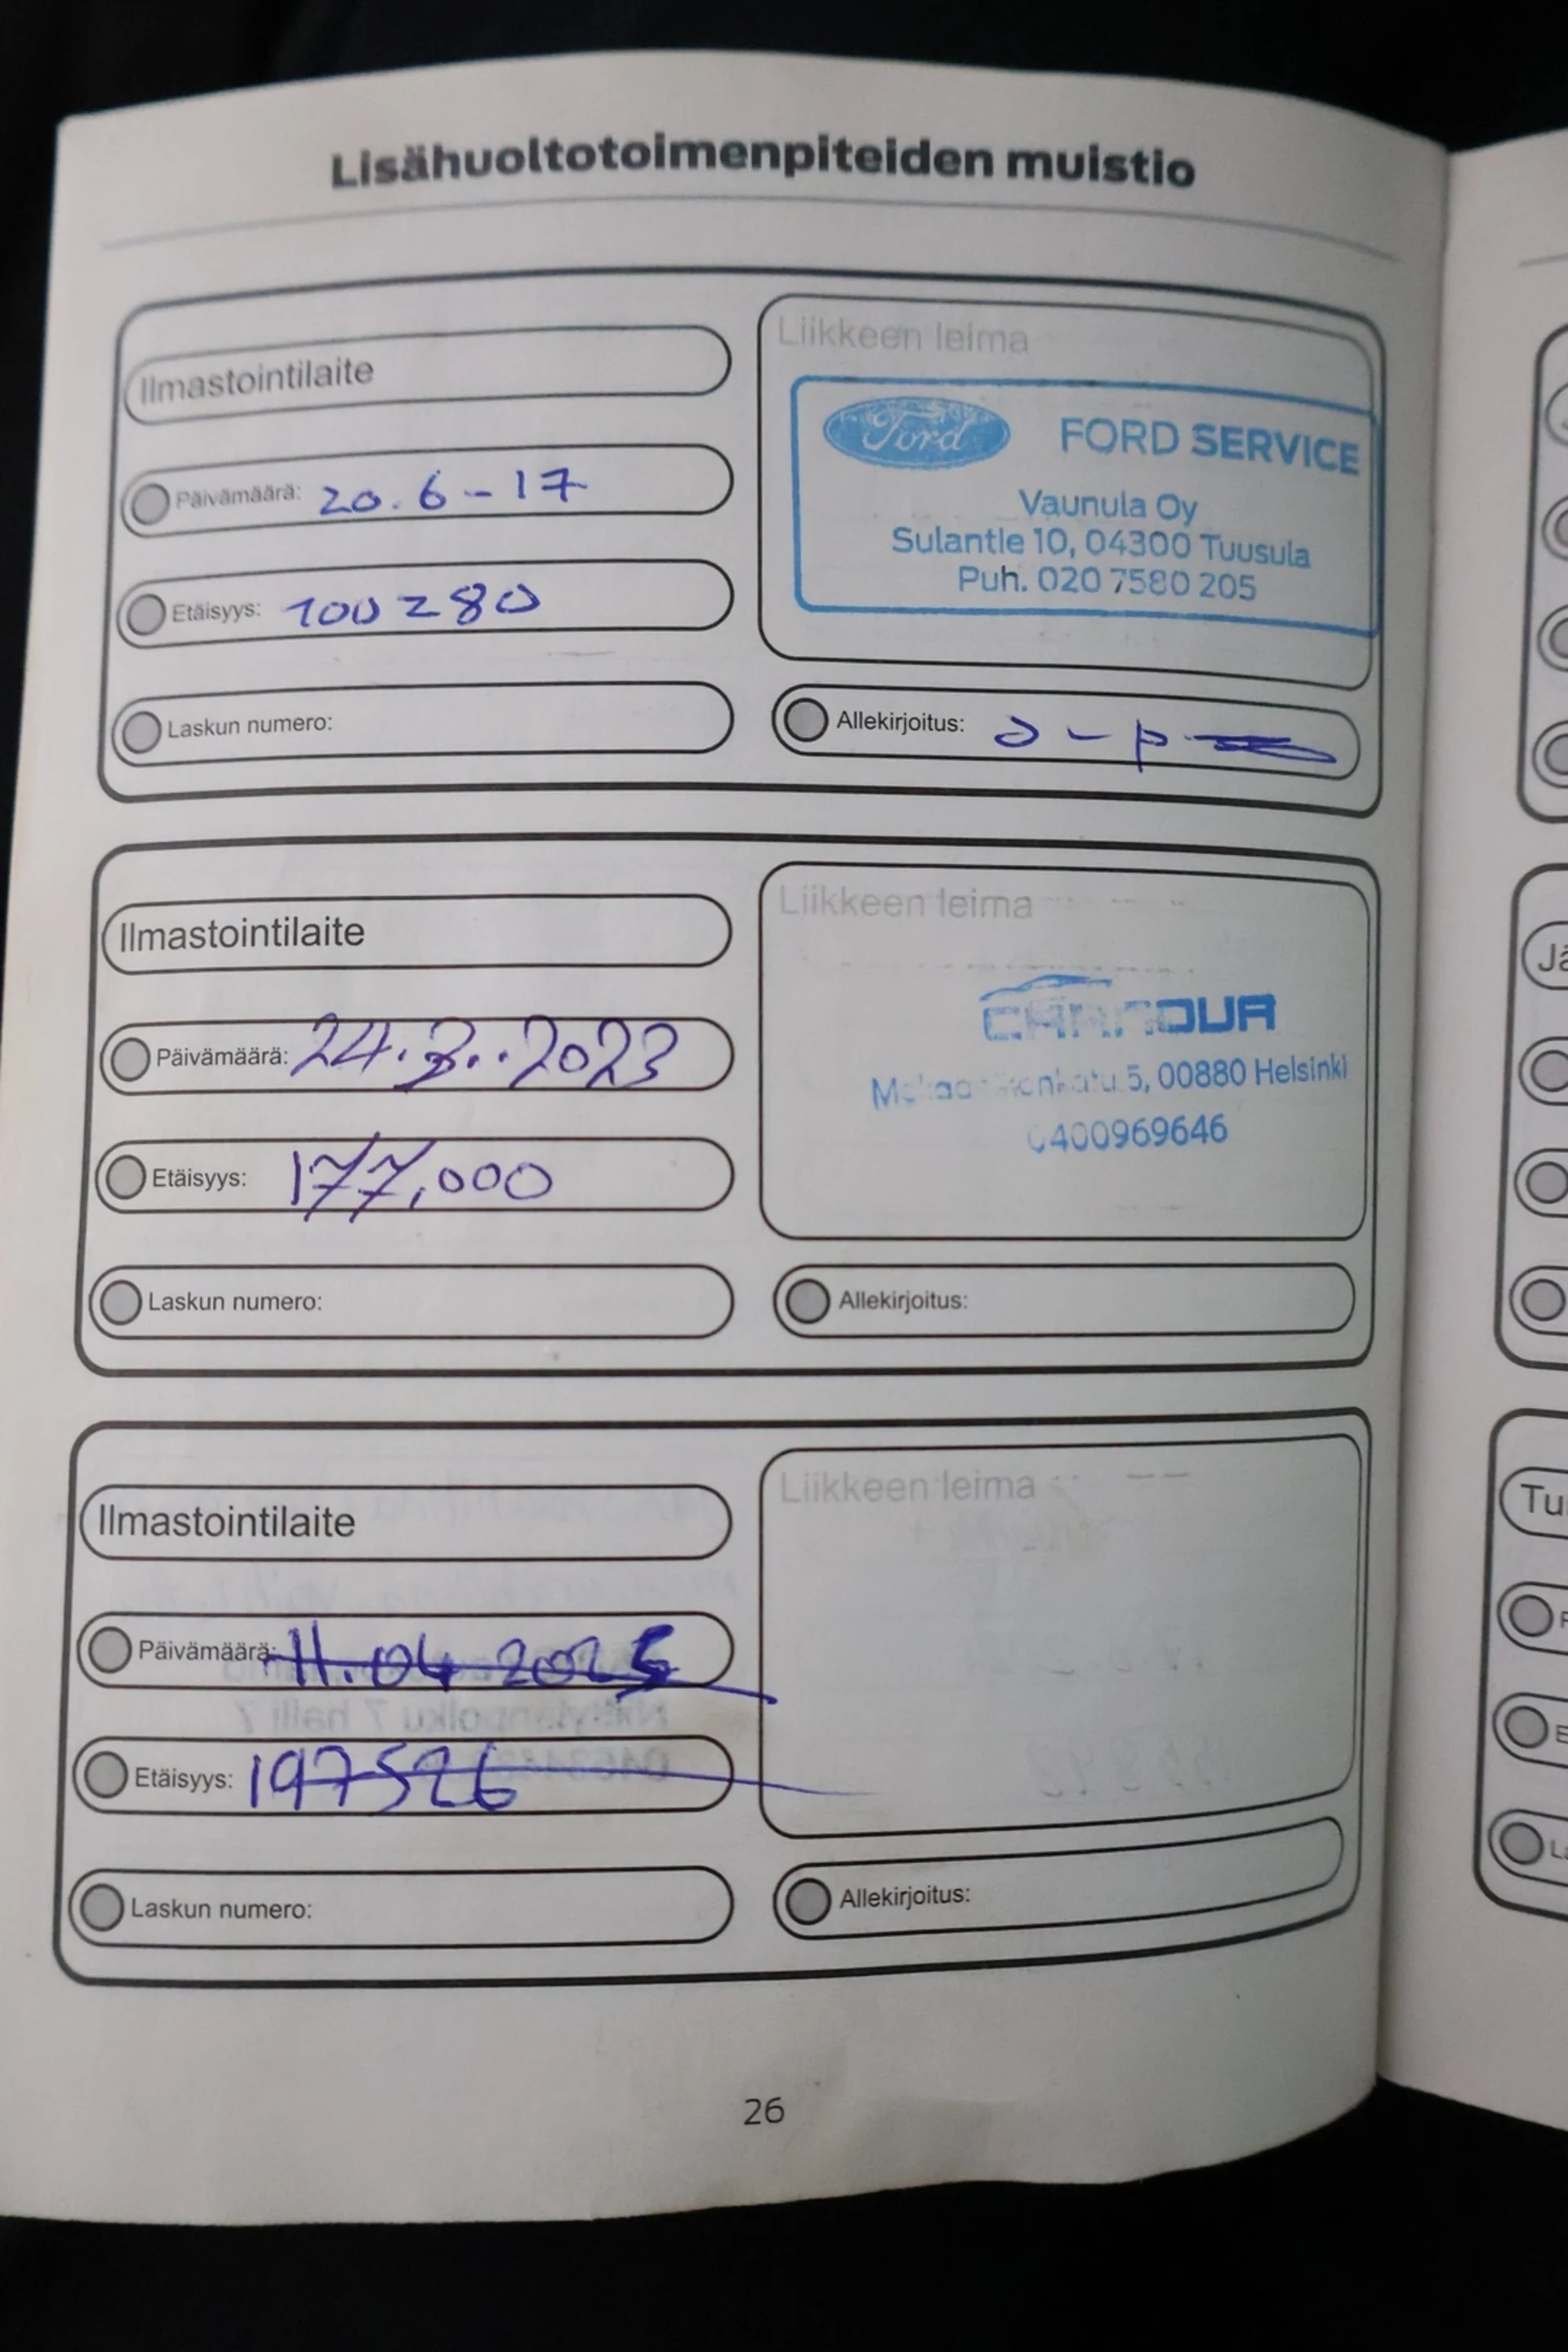 Lisähuoltotoimenpiteiden muistio
Ilmastointilaite
Päivämäärä: 20.6-17
Etäisyys: 100280
Laskun numero:
Liikkeen leima
Ford FORD SERVICE
Vaunula Oy
Sulantie 10, 04300 Tuusula
Puh. 020 7580 205
Allekirjoitus:
Ilmastointilaite
Päivämäärä: 24.3..2023
Etäisyys: 177,000
Laskun numero:
Liikkeen leima
5, 00880 Helsinki
0400969646
Allekirjoitus:
Ilmastointilaite
Päivämäärä: 11.04 2025
Etäisyys: 197526
Laskun numero:
Liikkeen leima
Allekirjoitus:
26
Jä
Tu